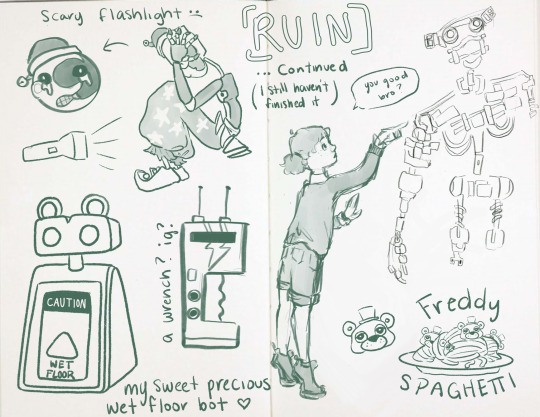 Scary flashlight :(
[RUIN]
... Continued
(i still haven't
finished it)
you good
bro?
a wrench? ig?
CAUTION
WET
FLOOR
my sweet precious
wet floor bot ♡
Freddy
SPAGHETTI